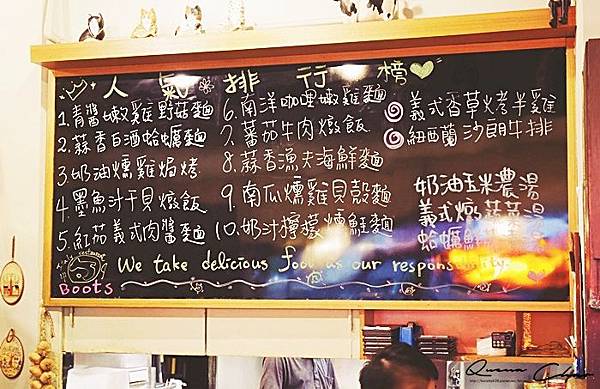 人氣排行榜
1.青醬嫩雞野菇麵
2.蒜香白酒蛤蠣麵
3.奶油燻雞焗烤
4.墨魚汁干貝燉飯
5.紅茄義式肉醬麵
6.南洋咖哩嫩雞麵
7.蕃茄牛肉燉飯
8.蒜香漁夫海鮮麵
9.南瓜燻雞貝殼麵
10.奶汁檸檬燻鮭麵
義式香草烤半雞
紐西蘭沙朗牛排
奶油玉米濃湯
義式燉蔬菜湯
蛤蠣鮮
We take delicious food as our responsibility.
Boots